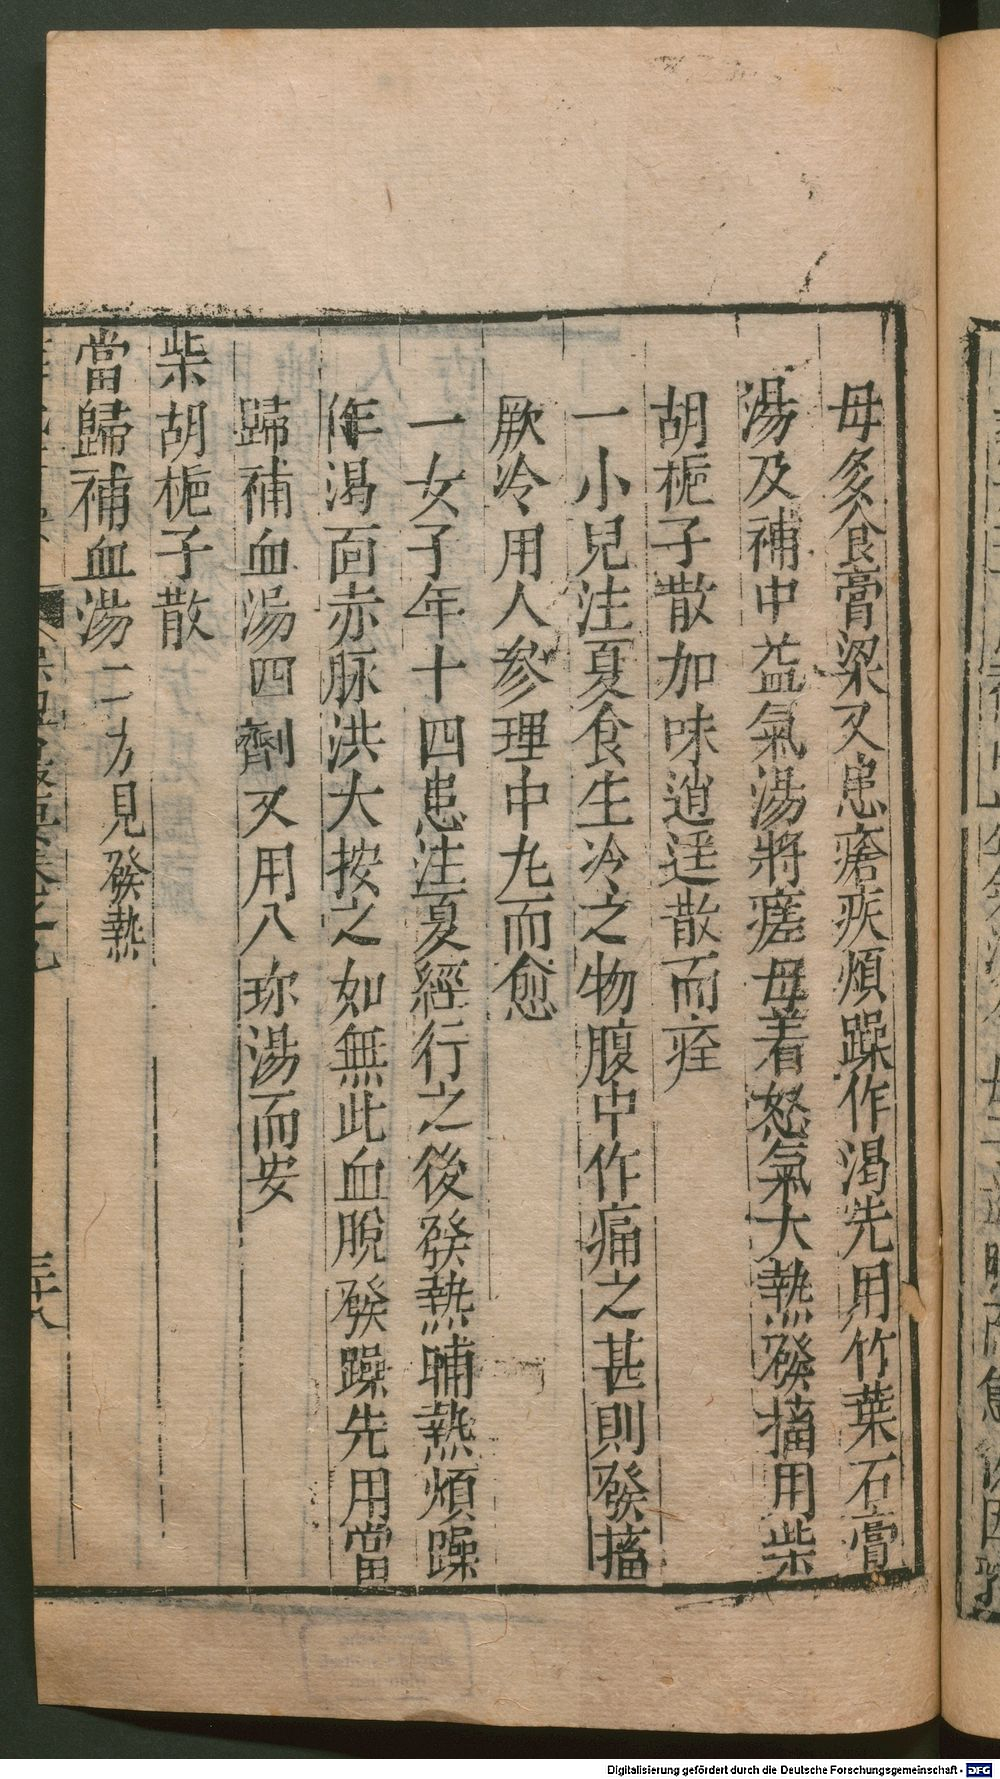 母炙食膏梁又患瘡疾煩躁作渴先用竹葉石膏
湯及補中益氣湯將瘥母着怒氣大熱發搐用柴
胡梔子散加味逍遥散而痊
一小兒注夏食生冷之物腹中作痛之甚則發搐
厥冷用人參理中丸而愈
一女子年十四患注夏經行之後發熱晡熱煩躁
作渴面赤脉洪大按之如無此血脫發躁先用當
歸補血湯四劑又用八珎湯而安
柴胡梔子散
當歸補血湯二方見發熱
三十八
Digitalisierung gefördert durch die Deutsche Forschungsgemeinschaft - DFG